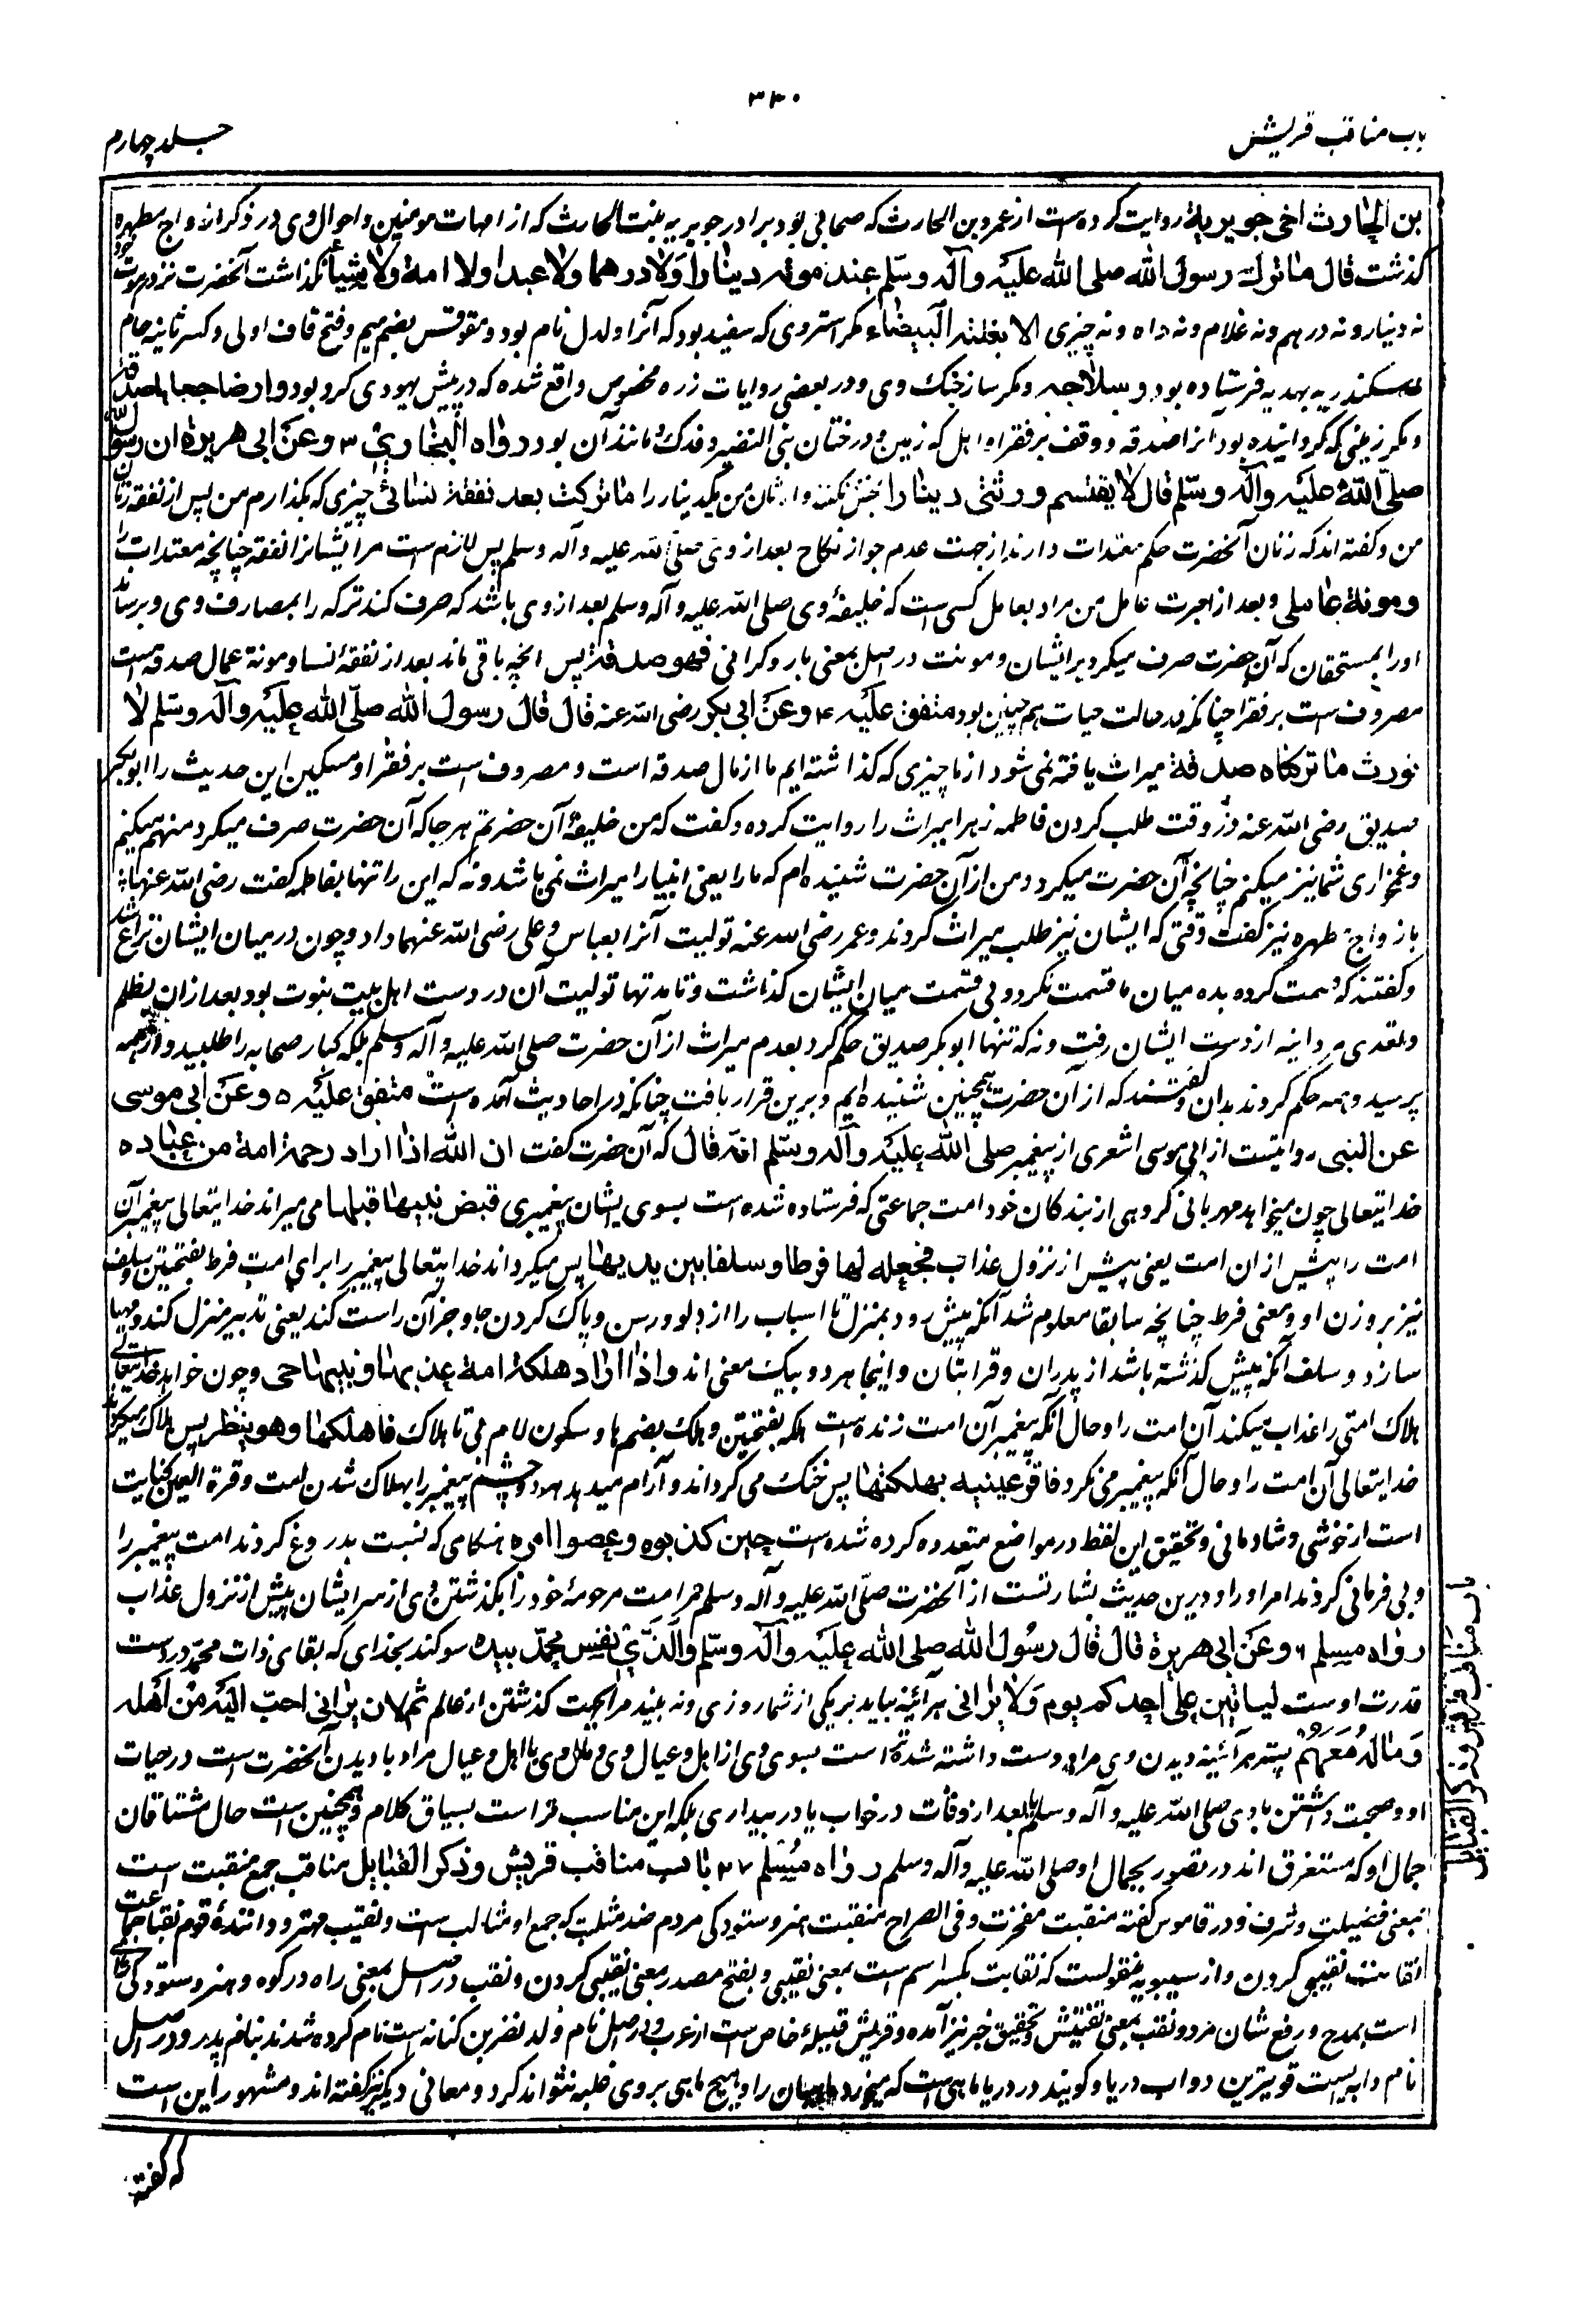 ۳۳۰
باب مناقب قریش
جلد چهارم
بن الحارث اخی جویریة روایت کرده‌ست از عمرو بن الحارث که صحابی بود برادر جویریه بنت الحارث که از امهات مومنین و احوال وی در ذکر ازواج مطهره
گذشت قال ما ترک رسول الله صلی الله علیه وآله وسلم عند موته دینارا ولا درهما ولا عبدا ولا امة ولا شیئا نگذاشت آنحضرت نزد موت خود
نه دینار و نه درهم و نه غلام و نه داه و نه چیزی الا بغلته البیضاء مگر استر وی که سفید بود که آنرا دلدل نام بود و مقوقس بضم میم و فتح قاف اولی و کسر ثانیه حاکم
اسکندریه بهدیه فرستاده بود وسلاحه و مگر ساز جنگ وی و در بعضی روایات زره مخصوص واقع شده که در پیش یهودی گرو بود وارضا جعلها صدقة
و مگر زمینی که گردانیده بود آنرا صدقه و وقف بر فقرا و اهل که زمین و درختان بنی النضیر و فدک و مانند آن بود رواه البخاری ۳ وعن ابی هریرة ان رسول الله
صلی الله علیه وآله وسلم قال لا یقتسم ورثتی دینارا بخش نکنند وارثان من یکدینار را ما ترکت بعد نفقة نسائی چیزی که بگذارم من پس از نفقه زنان
من و گفته اند که زنان آنحضرت حکم معتدات دارند از جهت عدم جواز نکاح بعد از وی صلی الله علیه و آله وسلم پس لازم ست مر ایشانرا نفقه چنانچه معتدات را
ومونة عاملی و بعد از اجرت عامل من مراد بعامل کسی است که خلیفهٔ وی صلی الله علیه و آله وسلم بعد از وی باشد که صرف کند ترکه را بمصارف وی و برساند
او را بمستحقان که آن حضرت صرف میکرد بر ایشان و مونت در اصل بمعنی بار و گرانی فهو صدقة پس انچه باقی ماند بعد از نفقهٔ نسا و مونة عمال صدقه است
مصروف ست بر فقرا چنانکه در حالت حیات هم چنین بود متفق علیه ۴ وعن ابی بکر رضی الله عنه قال قال رسول الله صلی الله علیه وآله وسلم لا
نورث ما ترکناه صدقة میراث یافته نمی شود از ما چیزی که گذاشته ایم ما از مال صدقه است و مصروف است بر فقرا و مسکین این حدیث را ابوبکر
صدیق رضی الله عنه در وقت طلب کردن فاطمه زهرا میراث را روایت کرده و گفت که من خلیفهٔ آن حضرتم هر جا که آن حضرت صرف میکرد منهم میکنم
و غمخواری شما نیز میکنم چنانچه آن حضرت میکرد و من از آن حضرت شنیده ام که ما را یعنی انبیا را میراث نمی باشد و نه که این را تنها بفاطمه گفت رضی الله عنها
بازواج مطهره نیز گفت وقتی که ایشان نیز طلب میراث کردند و عمر رضی الله عنه تولیت آنرا بعباس و علی رضی الله عنهما داد و چون درمیان ایشان نزاع شد
و گفتند که قسمت کرده بده میان ما قسمت نکرد و بی قسمت میان ایشان گذاشت و تا مدتها تولیت آن در دست اهل بیت نبوت بود بعد ازان بظلم
و تعدی مروانیه از دست ایشان رفت و نه که تنها ابوبکر صدیق حکم کرد بعدم میراث از آن حضرت صلی الله علیه و آله وسلم بلکه کبار صحابه را طلبید و از همه
پرسید و همه حکم کردند بدان و گفتند که از آن حضرت همچنین شنیده ایم و برین قرار یافت چنانکه در احادیث آمده است متفق علیه ۵ وعن ابی موسی
عن النبی روایتست از ابی موسی اشعری از پیغمبر صلی الله علیه وآله وسلم انه قال که آن حضرت گفت ان الله اذا اراد رحمة امة من عباده
خدایتعالی چون میخواهد مهربانی گروهی از بندگان خود امت جماعتی که فرستاده شده است بسوی ایشان پیغمبری قبض نبیها قبلها می میراند خدایتعالی پیغمبر آن
امت را پیش از ان امت یعنی پیش از نزول عذاب فجعله لها فرطا وسلفا بین یدیها پس میگرداند خدایتعالی پیغمبر را برای امت فرط بفتحتین و سلف
نیز بر وزن او و معنی فرط چنانچه سابقا معلوم شد آنکه پیش رود بمنزل تا اسباب را از دلو و رسن و پاک کردن جا و جز آن راست کند یعنی تدبیر منزل کند و مهیا
سازد و سلف آنکه پیش گذشته باشد از پدران و قرابتان و اینجا هر دو بیک معنی اند واذا اراد هلکة امة عذبها ونبیها حی و چون خواهد خدایتعالی
هلاک امتی را عذاب میکند آن امت را و حال آنکه پیغمبر آن امت زنده است هلکه بفتحتین و هلک بضم ها و سکون لام بی تا هلاک فاهلکها وهو ینظر پس هلاک میگرداند
خدایتعالی آن امت را و حال آنکه پیغمبر می نگرد فاقر عینیه بهلکتها پس خنک می گرداند و آرام میدهد هر دو چشم پیغمبر را بهلاک شدن امت و قرة العین کنایت
است از خوشی و شادمانی و تحقیق این لفظ در مواضع متعدده کرده شده است حین کذبوه وعصوا امره هنگامی که نسبت بدروغ کردند امت پیغمبر را
و بی فرمانی کردند امر او را و درین حدیث بشارتست از آنحضرت صلی الله علیه و آله وسلم مر امت مرحومهٔ خود را بگذشتن وی از سر ایشان پیش از نزول عذاب
رواه مسلم ۶ وعن ابی هریرة قال قال رسول الله صلی الله علیه وآله وسلم والذی نفس محمد بیده سوگند بخدای که بقای ذات محمد در دست
قدرت اوست لیاتین علی احدکم یوم ولا یرانی هرآئینه بیاید بر یکی از شما روزی و نه بیند مرا بجهت گذشتن از عالم ثم لان یرانی احب الیه من اهله
وماله معهم پستر هرآئینه دیدن وی مرا دوست داشته شده تر است بسوی وی از اهل و عیال وی و مال وی با اهل و عیال مراد با دیدن آنحضرت است در حیات
او و صحبت داشتن با وی صلی الله علیه و آله وسلم یا بعد از وفات در خواب یا در بیداری بلکه این مناسب تر است بسیاق کلام و همچنین است حال مشتاقان
جمال او که مستغرق اند در تصور بجمال او صلی الله علیه وآله وسلم رواه مسلم ۲۷ باب مناقب قریش وذکر القبایل مناقب جمع منقبت است
بمعنی فضیلت و شرف و در قاموس گفته منقبت مفخرت و فی الصراح منقبت هنر و ستودگی مردم ضد مثلبت که جمع او مثالب ست و نقیب مهتر و دانندهٔ قوم نقبا جماعت
نقابت نقیبی کردن و از سیبویه منقولست که نقابت بکسر اسم است بمعنی نقیبی و بفتح مصدر بمعنی نقیبی کردن و نقب در اصل بمعنی راه در کوه و هنر و ستودگی
است بمدح و رفع شان مرد و نقب بمعنی تفتیش و تحقیق خبر نیز آمده و قریش قبیلهٔ خاص ست از عرب و در اصل نام ولد نضر بن کنانه است نام کرده شدند بنام پدر و در اصل
نام دابه ایست قویترین دواب دریا و گویند در دریا ماهی است که میخورد ماهیان را و هیچ ماهی بر وی غلبه نتواند کرد و معانی دیگر نیز گفته اند و مشهور این است
باب مناقب قریش و ذکر القبایل
که گفته